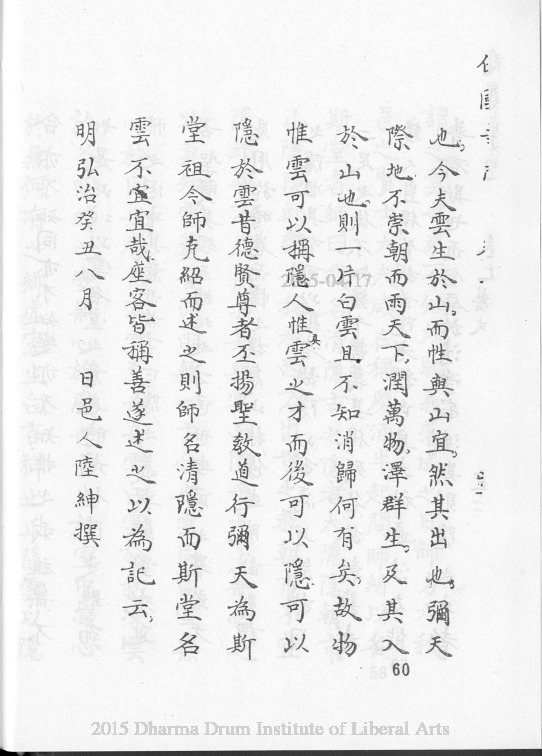 也。今夫雲生於山。而性與山宜。然其出也。彌天
際地不崇朝而雨天下。潤萬物。澤群生。及其入
於山也。則一片白雲且不知消歸何有矣。故物
惟雲可以擁隱人惟具雲之才而後可以隱。可以
隱於雲昔德賢尊者丕揚聖教道行彌天為斯
堂祖今師克紹而述之則師名清隱而斯堂名
雲不宜宜哉。座客皆稱善遂述之以為記云。
明弘治癸丑八月　日邑人陸紳撰
60
2015-04-17
2015 Dharma Drum Institute of Liberal Arts